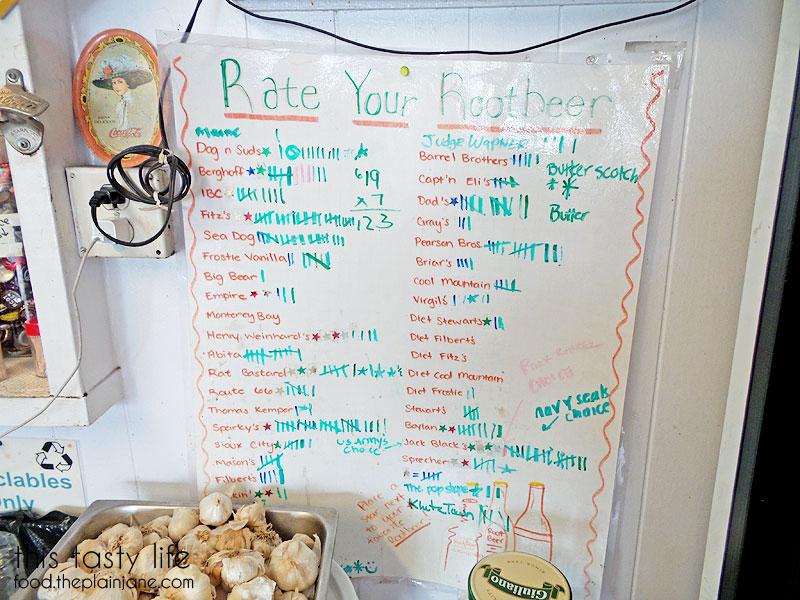 Rate Your Rootbeer
Dog n Suds
Berghoff
IBC
Fitz's
Sea Dog
Frostie Vanilla
Big Bear
Empire
Monterey Bay
Henry Weinhard's
Abita
Rat Bastard
Route 66
Thomas Kemper
Sparky's
Sioux City
US Army's
choice
Mason's
Filberts
619
x 7
123
Judge Wapner
Barrel Brothers
Capt'n Eli's
Dad's
Gray's
Pearson Bros
Briar's
Cool Mountain
Virgil's
Diet Stewarts
Diet Filberts
Diet Fitz's
Diet Cool Mountain
Diet Frostie
Stewarts
Baylan
Jack Black's
Sprecher
= 5
The pop shoppe
Butter scotch
Butter
navy seals
choice
Place a
Root
Beer
Coca-Cola
clables
Only
Giuliano
this tasty life
food.theplainjane.com